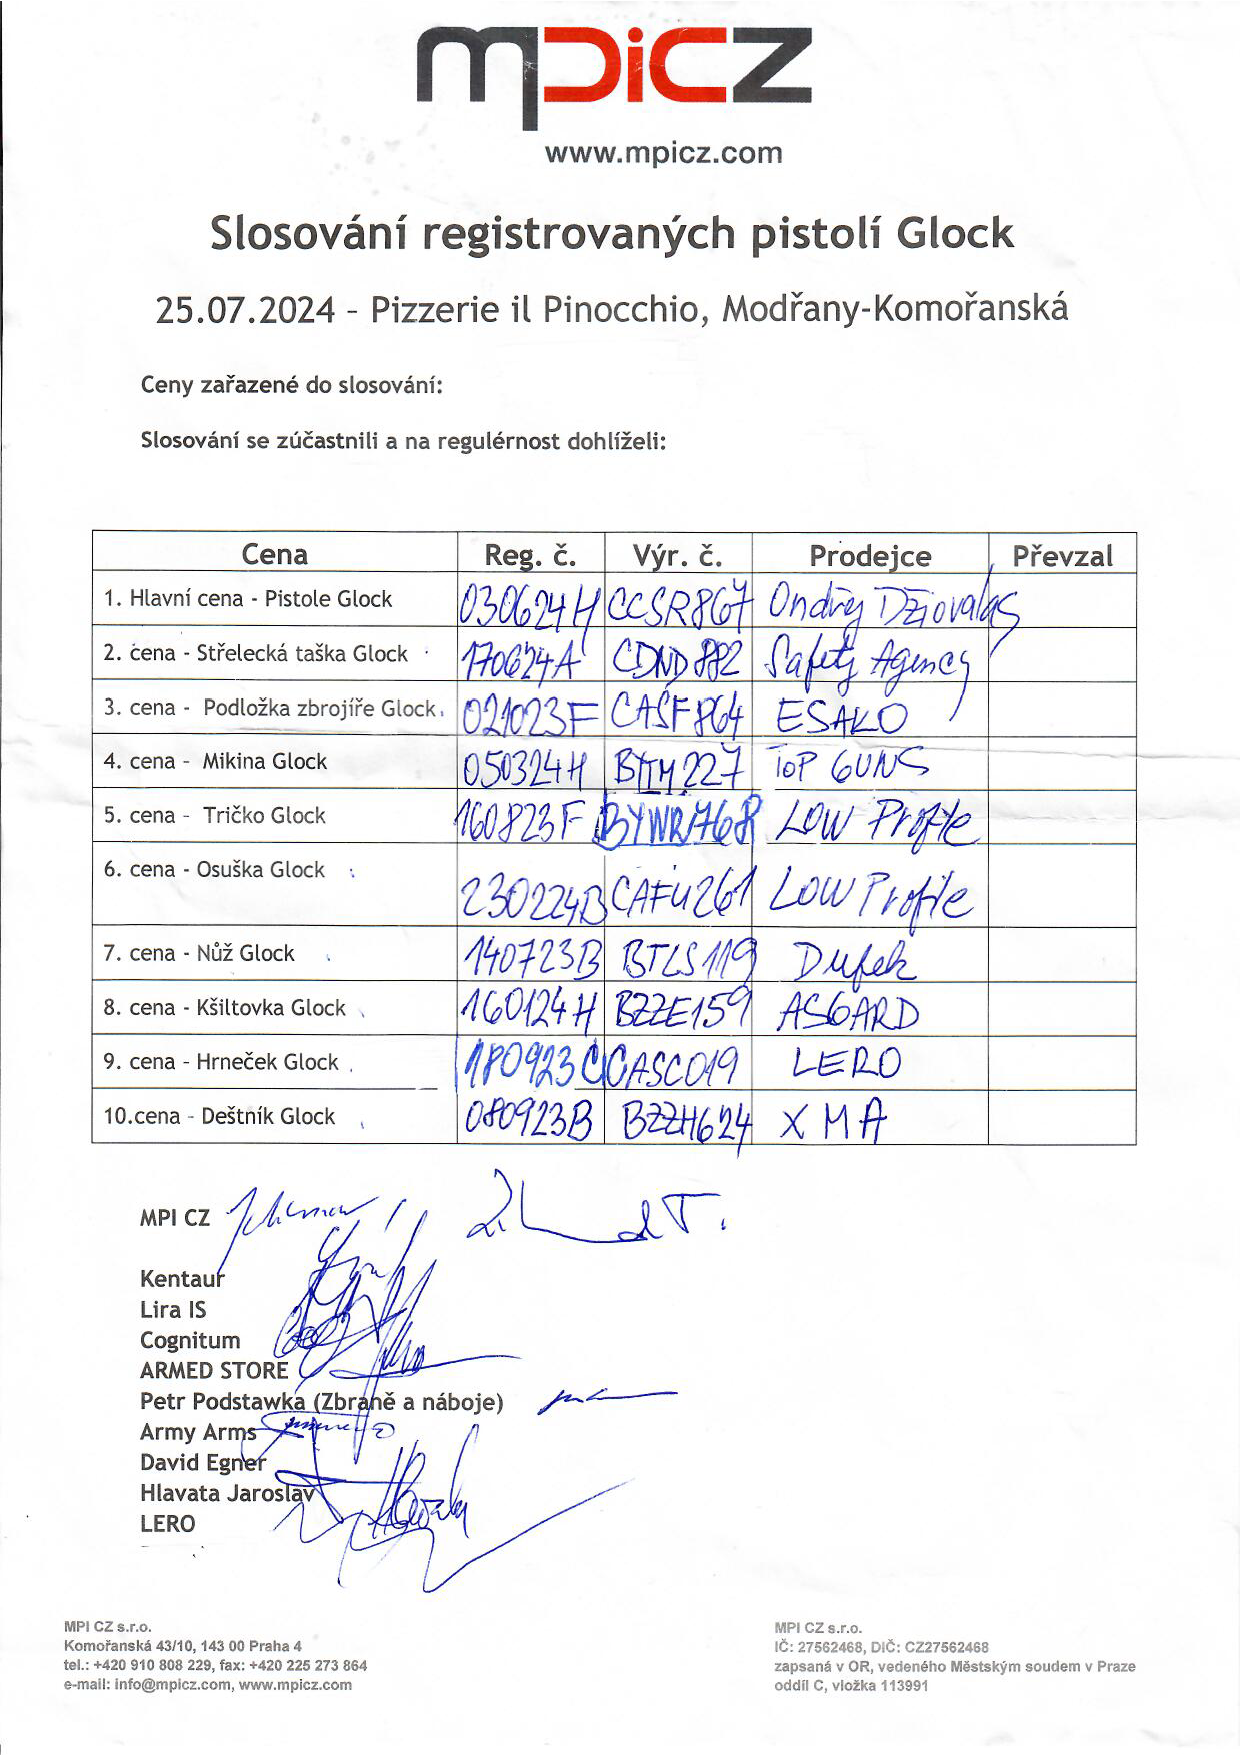 mpicz
www.mpicz.com
Slosování registrovaných pistolí Glock
25.07.2024 - Pizzerie il Pinocchio, Modřany-Komořanská
Ceny zařazené do slosování:
Slosování se zúčastnili a na regulérnost dohlíželi:
Cena Reg. č. Výr. č. Prodejce Převzal
1. Hlavní cena - Pistole Glock 030624H CCSR867 Ondřej
2. cena - Střelecká taška Glock 170624A CDND882 Safety Agency
3. cena - Podložka zbrojíře Glock 021023F CASF864 ESAKO
4. cena - Mikina Glock 050324H BTTM227 TOP GUNS
5. cena - Tričko Glock 160823F BYWR768 LOW Profile
6. cena - Osuška Glock 230224B CAFU261 LOW Profile
7. cena - Nůž Glock 140723B BTLS119 Dufek
8. cena - Kšiltovka Glock 160124H BZZE159 ASGARD
9. cena - Hrneček Glock 180923C CASC019 LERO
10.cena - Deštník Glock 080923B BZZH624 XMA
MPI CZ
Kentaur
Lira IS
Cognitum
ARMED STORE
Petr Podstawka (Zbraně a náboje)
Army Arms
David Egner
Hlavata Jaroslav
LERO
MPI CZ s.r.o.
Komořanská 43/10, 143 00 Praha 4
tel.: +420 910 808 229, fax: +420 225 273 864
e-mail: info@mpicz.com, www.mpicz.com
MPI CZ s.r.o.
IČ: 27562468, DIČ: CZ27562468
zapsaná v OR, vedeného Městským soudem v Praze
oddíl C, vložka 113991